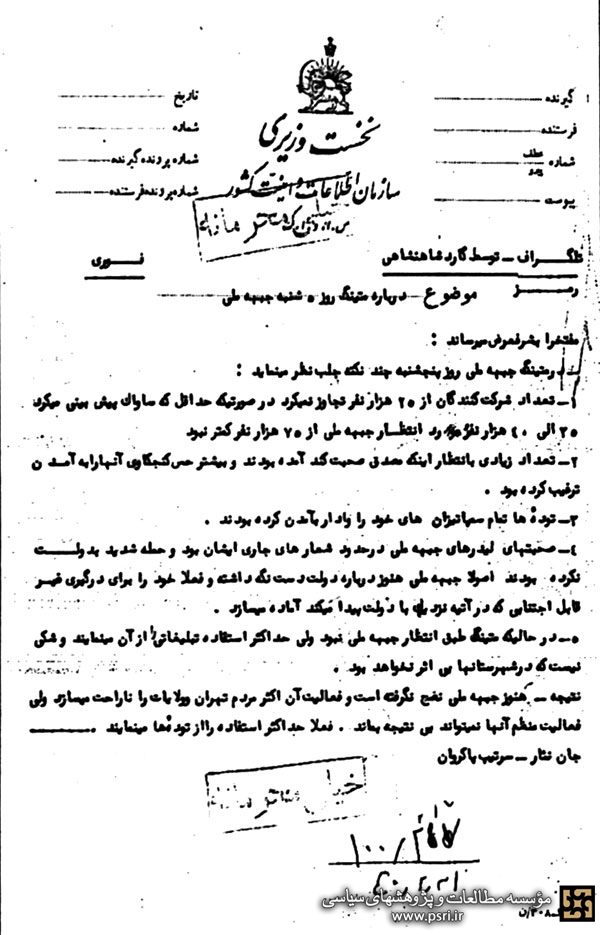 نخست وزیری
سازمان اطلاعات و امنیت کشور
گیرنده
فرستنده
شماره
پیوست
تاریخ
شماره
شماره پرونده گیرنده
شماره پرونده فرستنده
تلگراف - توسط گارد شاهنشاهی
فوری
رمز
موضوع درباره متینگ روز ۵ شنبه جبهه ملی
مفتخرا بشرفعرض میرساند :
متینگ جبهه ملی روز پنجشنبه چند نکته جلب نظر مینماید :
۱- تعداد شرکت کنندگان از ۲۵ هزار نفر تجاوز نمیکرد در صورتیکه حداقل که ساواک پیش بینی میکرد
۳۵ الی ۴۰ هزار نفر بود انتظار جبهه ملی از ۷۵ هزار نفر کمتر نبود
۲- تعداد زیادی بانتظار اینکه مصدق صحبت کند آمده بودند و بیشتر حس کنجکاوی آنها را به آمدن
ترغیب کرده بود .
۳- توده ها تمام سمپاتیزان های خود را وادار بآمدن کرده بودند .
۴- صحبتهای لیدرهای جبهه ملی در حدود شعارهای جاری ایشان بود و حمله شدید بدولت
نکرده بودند اصولا جبهه ملی هنوز درباره دولت دست نگه داشته و فعلا خود را برای درگیری غیر
قابل اجتنابی که در آتیه نزدیک با دولت پیدا میکند آماده میسازد .
۵- در حالیکه متینگ طبق انتظار جبهه ملی نبود ولی حداکثر استفاده تبلیغاتی را از آن مینمایند و شکی
نیست که در شهرستانها بی اثر نخواهد بود .
نتیجه - هنوز جبهه ملی نضج نگرفته است و فعالیت آن اکثر مردم تهران و ولایات را ناراحت میسازد ولی
فعالیت منظم آنها نمیتواند بی نتیجه بماند . فعلا حداکثر استفاده را از توده ها مینمایند .
جان نثار - سرتیپ پاکروان
خیلی
۱۰۰/
مؤسسه مطالعات و پژوهشهای سیاسی
www.psri.ir